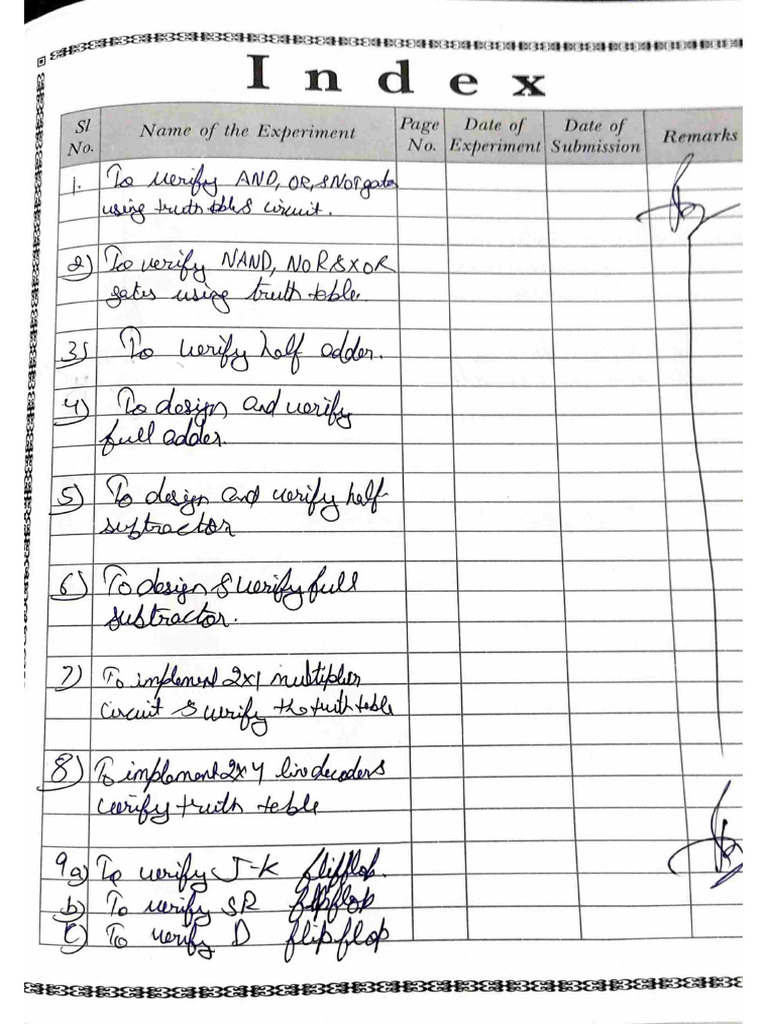 Index
Sl No. Name of the Experiment Page No. Date of Experiment Date of Submission Remarks
1. To verify AND, OR, & NOT gates
using truth table & circuit.
2) To verify NAND, NOR & XOR
gates using truth table.
3) To verify half adder.
4) To design and verify
full adder.
5) To design and verify half
subtractor
6) To design & verify full
subtractor.
7) To implement 2x1 multiplier
circuit & verify the truth table
8) To implement 2x4 line decoders
verify truth table
9a) To verify J-K flipflop.
b) To verify SR flipflop
c) To verify D flipflop